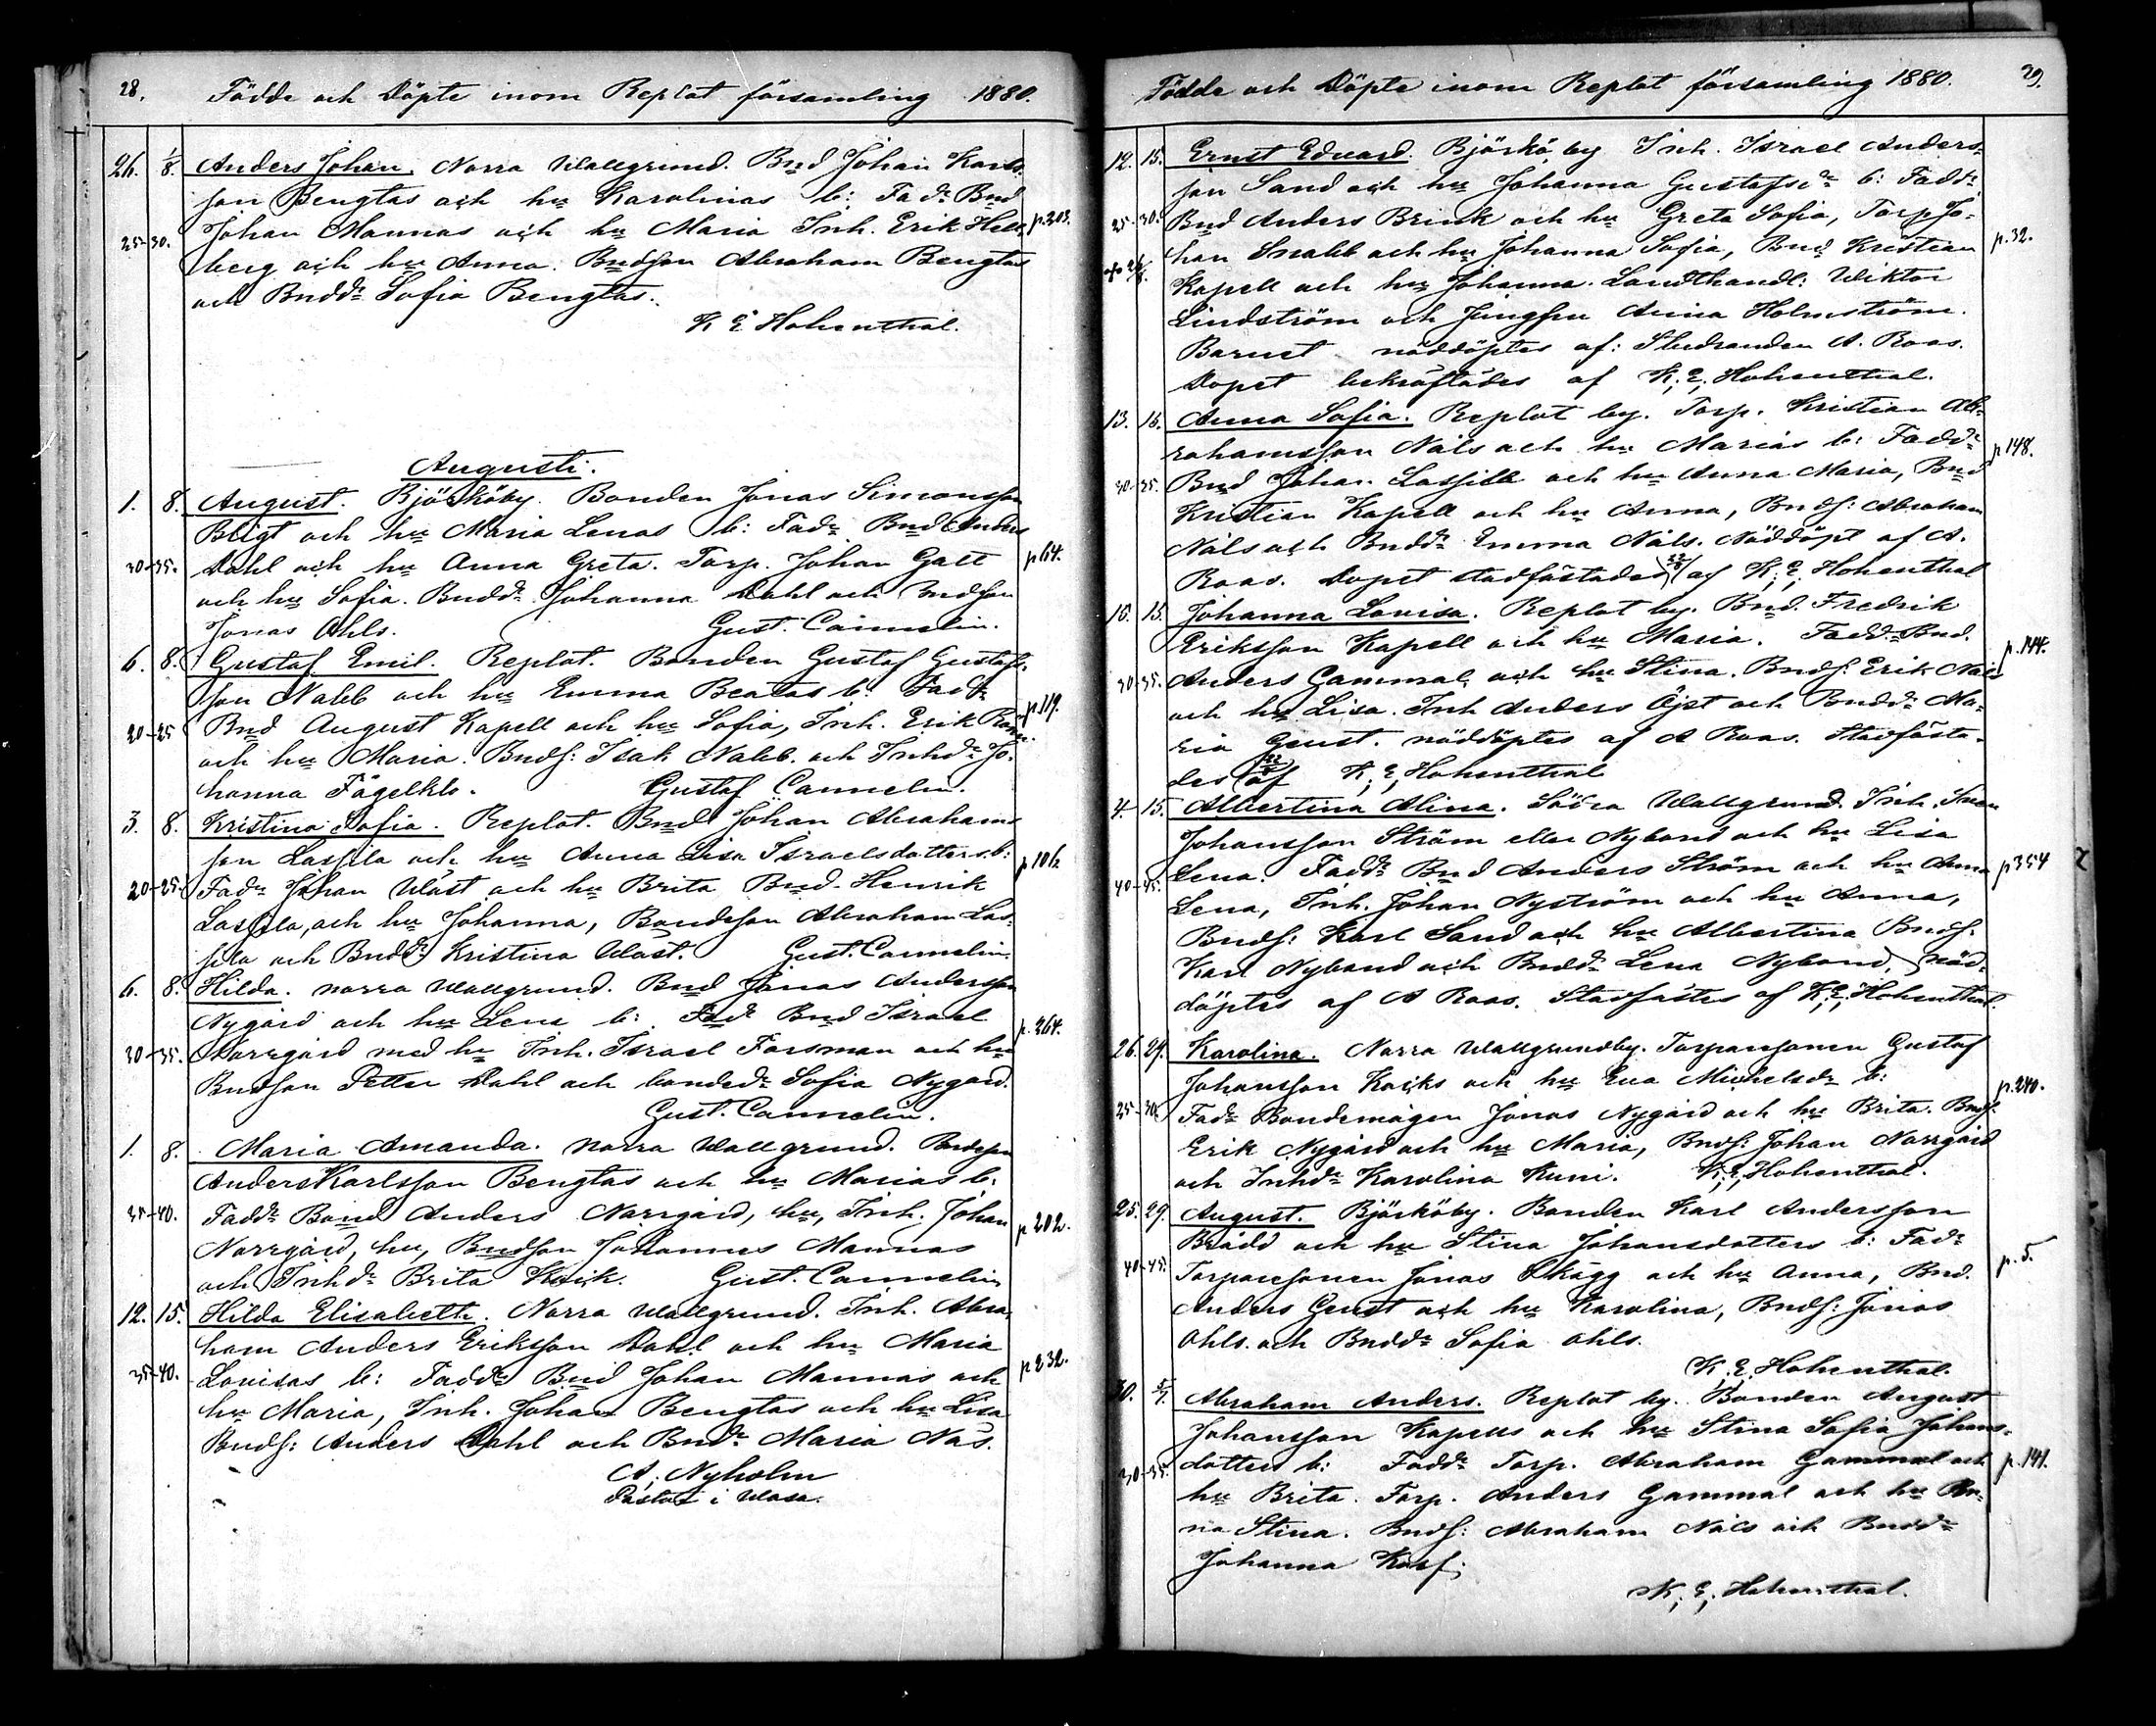 28.
Födde och Döpte inom Replot församling 1880.
26. 1/8. Anders Johan. Norra Wallgrund. Bnd Johan Karls-
son Bengtas och hu Karolinas b: Fadr Bnd p.203.
25-30. Johan Mannas och hu Maria Inh. Erik Hell-
berg och hu Anna. Bndson Abraham Bengtas
och Bnddr Sofia Bengtas.
K E Hohenthal.
Augusti.
1. 8. August. Björköby. Bonden Jonas Simonsson
Bligt och hu Maria Lenas b: Fadr Bnd Anders
30-35. Dahl och hu Anna Greta. Torp. Johan Galt p 64.
och hu Sofia. Bnddr Johanna Dahl och Bndson
Jonas Ohls. Gust. Cannelin.
6. 8. Gustaf Emil. Replot. Bonden Gustaf Gustafs-
son Nabb och hu Emma Beatas b: Faddr
20-25 Bnd August Kapell och hu Sofia, Inh. Erik p.119.
och hu Maria. Bnds: Isak Nabb och Inhdr Jo-
hanna Fågelklo. Gustaf Cannelin.
3. 8. Kristina Sofia. Replot. Bnd Johan Abrahams
son Lassila och hu Anna Lisa Israelsdotters b: p 106
20-25. Fadr Johan Wäst och hu Brita Bnd. Henrik
Lassila, och hu Johanna, Bondeson Abraham Las-
sila och Bnddr Kristina Wäst. Gust. Cannelin.
6. 8. Hilda. Norra Wallgrund. Bnd Jonas Andersson
Nygård och hu Lena b: Fadr Bnd Israel p. 264.
30-35. Norrgård med hu Inh. Israel Forsman och hu
Bndson Petter Dahl och bondedr Sofia Nygård.
Gust. Cannelin.
1. 8. Maria Amanda. Norra Wallgrund. Bndeson
Anders Karlsson Bengtas och hu Marias b.
35-40. Faddr Bond Anders Norrgård, hu, Inh. Johan p 202.
Norrgård, hu, Bndson Johannes Mannas
och Inhdr Brita Kåik. Gust. Cannelin
12. 15. Hilda Elisabeth. Norra Wallgrund. Inh. Abra-
ham Anders Eriksson Dahl och hu Maria
35-40. Lovisas b: Faddr Bnd Johan Mannas och p 232.
hu Maria, Inh. Johan Bengtas och hu Lisa
Bnds: Anders Dahl och Bndr Maria Näs.
A. Nyholm
Pastor i Wasa.
29.
Födde och Döpte inom Replot församling 1880.
12. 15. Ernst Edvard. Björkö by Inh. Israel Anders-
son Sand och hu Johanna Gustafsdr b: Faddr
25-30. Bnd Anders Brink och hu Greta Sofia, Torp Jo- p.32.
han Snabb och hu Johanna Sofia, Bnd Kristian
Kapell och hu Johanna. Landthandl: Wiktor
Lindström och Jungfru Anna Holmström.
Barnet nöddöptes af: Studranden A. Roos.
Dopet bekräftades af K. E. Hohenthal.
13. 16. Anna Sofia. Replot by. Torp. Kristian Ab-
rahamsson Näls och hu Marias b: Faddr p 148.
30-35. Bnd Johan Lassila och hu Anna Maria, Bnd
Kristian Kapell och hu Anna, Bnds: Abraham
Näls och Bnddr Emma Näls. Nöddöpt af A.
Roos. Dopet stadfästades 22/8 af K. E. Hohenthal
15. 15. Johanna Lovisa. Replot by. Bnd. Fredrik
Eriksson Kapell och hu Maria. Fadd. Bnd. p. 144.
30-35. Anders Gammal och hu Stina. Bnds: Erik Näls
och hu Lisa. Inh Anders Öjst och Bnddr Ma-
ria Geust. nöddöptes af A Roos. Stadfästa-
des 22/8 af K. E. Hohenthal
4. 15. Albertina Alina. Södra Wallgrund. Inh. Sven
Johansson Ström eller Nybond och hu Lisa
Lena. Faddr Bnd Anders Ström och hu Anna p 354
40-45. Lena, Inh. Johan Nyström och hu Anna,
Bnds: Karl Sand och hu Albertina Bnds:
Karl Nybond och Bnddr Lena Nybond, nöd-
döptes af A Roos. Stadfästes af K. E. Hohenthal.
26. 29. Karolina. Norra Wallgrundby. Torparsonen Gustaf
Johansson Kaiks och hu Eva Michelsdr b: p.240.
25-30. Fadr Bondemågen Jonas Nygård och hu Brita. Bnds:
Erik Nygård och hu Maria, Bnds: Johan Norrgård
och Inhdr Karolina Kuni. K. E. Hohenthal.
25. 29. August. Björköby. Bonden Karl Andersson
Brådd och hu Stina Johansdotters b: Fadr p. 5.
40-45. Torparesonen Jonas Skägg och hu Anna, Bnd.
Anders Geust och hu Karolina, Bnds: Jonas
Ohls. och Bnddr Sofia Ohls.
K. E. Hohenthal.
30. Abraham Anders. Replot by. Bonden August
Johansson Kapells och hu Stina Sofia Johans-
30-35. dotters b: Faddr Torp. Abraham Gammal och p. 141.
hu Brita. Torp. Anders Gammal och hu An-
na Stina. Bnds: Abraham Näls och Bnddr
Johanna
K. E. Hohenthal.